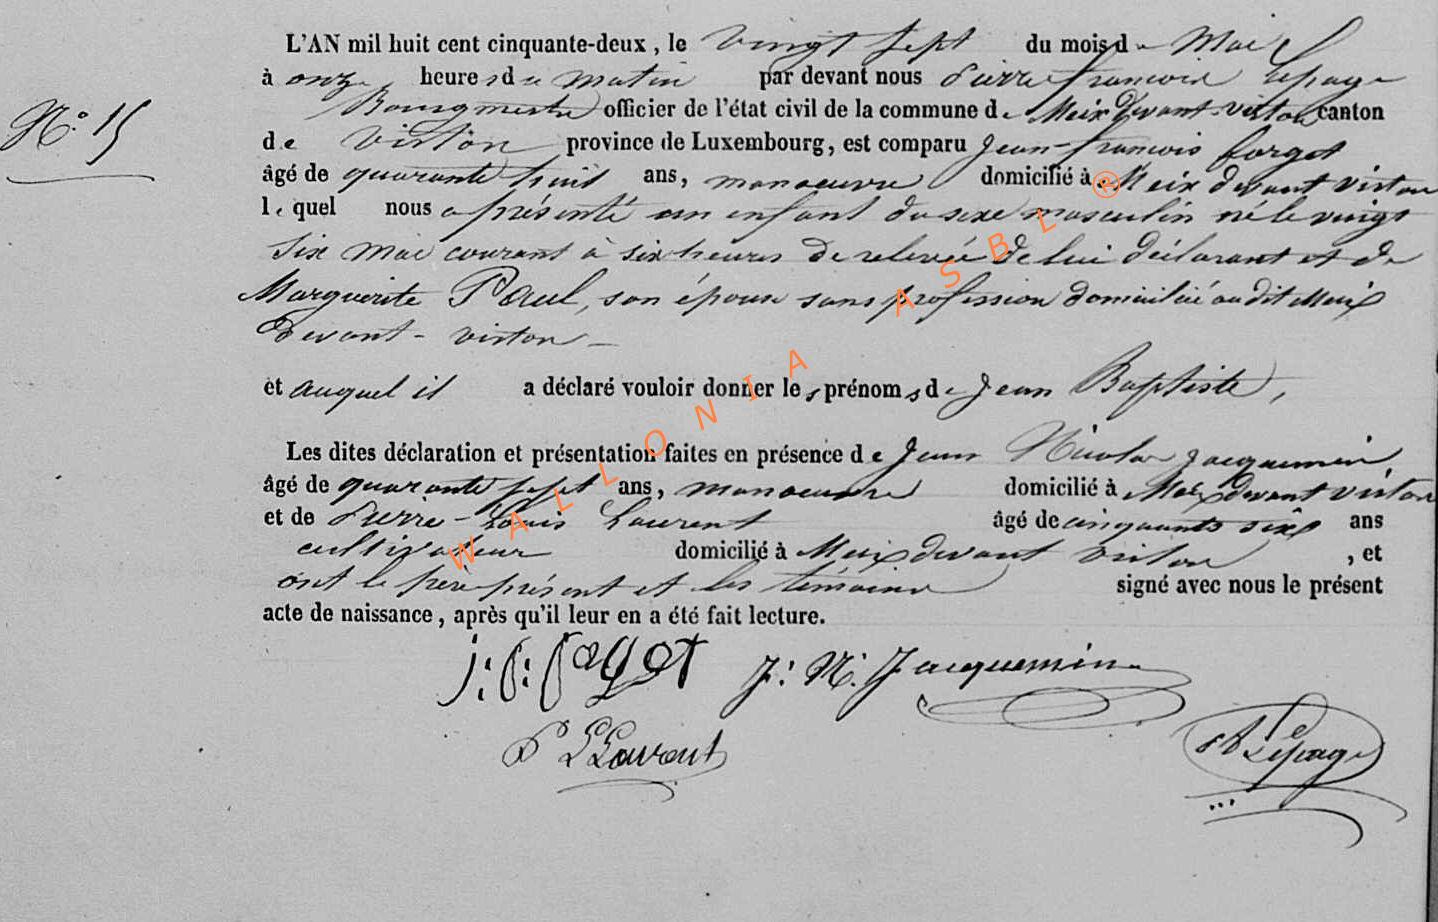 L'AN mil huit cent cinquante-deux, le vingt sept du mois de Mai
à onze heures du matin par devant nous Pierre françois Lepage
N.° 15
Bourgmestre officier de l'état civil de la commune de Meix devant-virton canton
de Virton province de Luxembourg, est comparu Jean-francois forget
âgé de quarante huit ans, manoeuvre domicilié à Meix devant virton
lequel nous a présenté un enfant du sexe masculin né le vingt
six mai courant à six heures de relevée de lui déclarant et de
Marguerite Paul, son épouse sans profession domiciliée au dit Meix
devant-virton
et auquel il a déclaré vouloir donner les prénoms de Jean Baptiste,
Les dites déclaration et présentation faites en présence de Jean Nicolas Jacquemin,
âgé de quarante sept ans, manoeuvre domicilié à Meix devant virton
et de Pierre-Louis Laurent âgé de cinquante six ans
cultivateur domicilié à Meix devant virton, et
ont le père présent et les témoins signé avec nous le présent
acte de naissance, après qu'il leur en a été fait lecture.
J: N. Jacquemin
P L Laurent
Lepage
WALLONIA ASBL ®